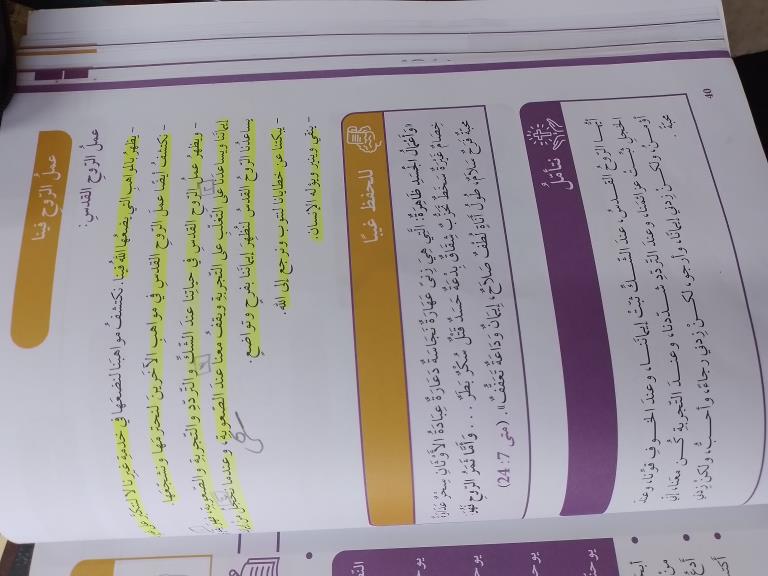 عملُ الرّوحِ فينا
عملُ الرّوحِ القدسِ:
- يظهر بالمواهب التي يضعها الله فينا. نكتشف مواهبنا لنضعها في خدمة غيرنا لا لنتكبّر
- نكتشف أيضًا عمل الروح القدس في مواهب الآخرين لنحترمها ونشجّعها.
- ويظهر عمل الروح القدس في حياتنا عند الشكّ والتردّد والتجربة والصعوبة،
إيماننا ويساعدنا على التغلّب على التجربة ويقف معنا عند الصعوبة، وعندما نخجل
يساعدنا الروح القدس لنُظهر إيماننا بفرح وتواضع.
- يبكّتنا عن خطايانا لنتوب ونرجع إلى الله.
- ينقّي وينير ويؤلّه الإنسان.
للحفظ غيبًا
«وَأَعْمَالُ الْجَسَدِ ظَاهِرَةٌ: الَّتِي هِيَ زِنًى عَهَارَةٌ نَجَاسَةٌ دَعَارَةٌ عِبَادَةُ الأَوْثَانِ سِحْرٌ عَدَاوَةٌ
خِصَامٌ غَيْرَةٌ سَخَطٌ تَحَزُّبٌ شِقَاقٌ بِدْعَةٌ حَسَدٌ قَتْلٌ سُكْرٌ بَطَرٌ ... وَأَمَّا ثَمَرُ الرُّوحِ فَهُوَ:
مَحَبَّةٌ فَرَحٌ سَلاَمٌ، طُولُ أَنَاةٍ لُطْفٌ صَلاَحٌ، إِيمَانٌ وَدَاعَةٌ تَعَفُّفٌ». (متى 7: 24)
نتأمّل
أيّها الروح القدس، عند الشكّ ثبّت إيماننا، وعند الخوف قوّنا، وعند
الخجل ثبّت عزائمنا، وعند التردّد شدّدنا، وعند التجربة كُن معنا، إنّي
أؤمن، ولكن زدني إيمانًا، وأرجو، لكن زدني رجاءً، وأحبّ، ولكن زدني
محبّة.
40